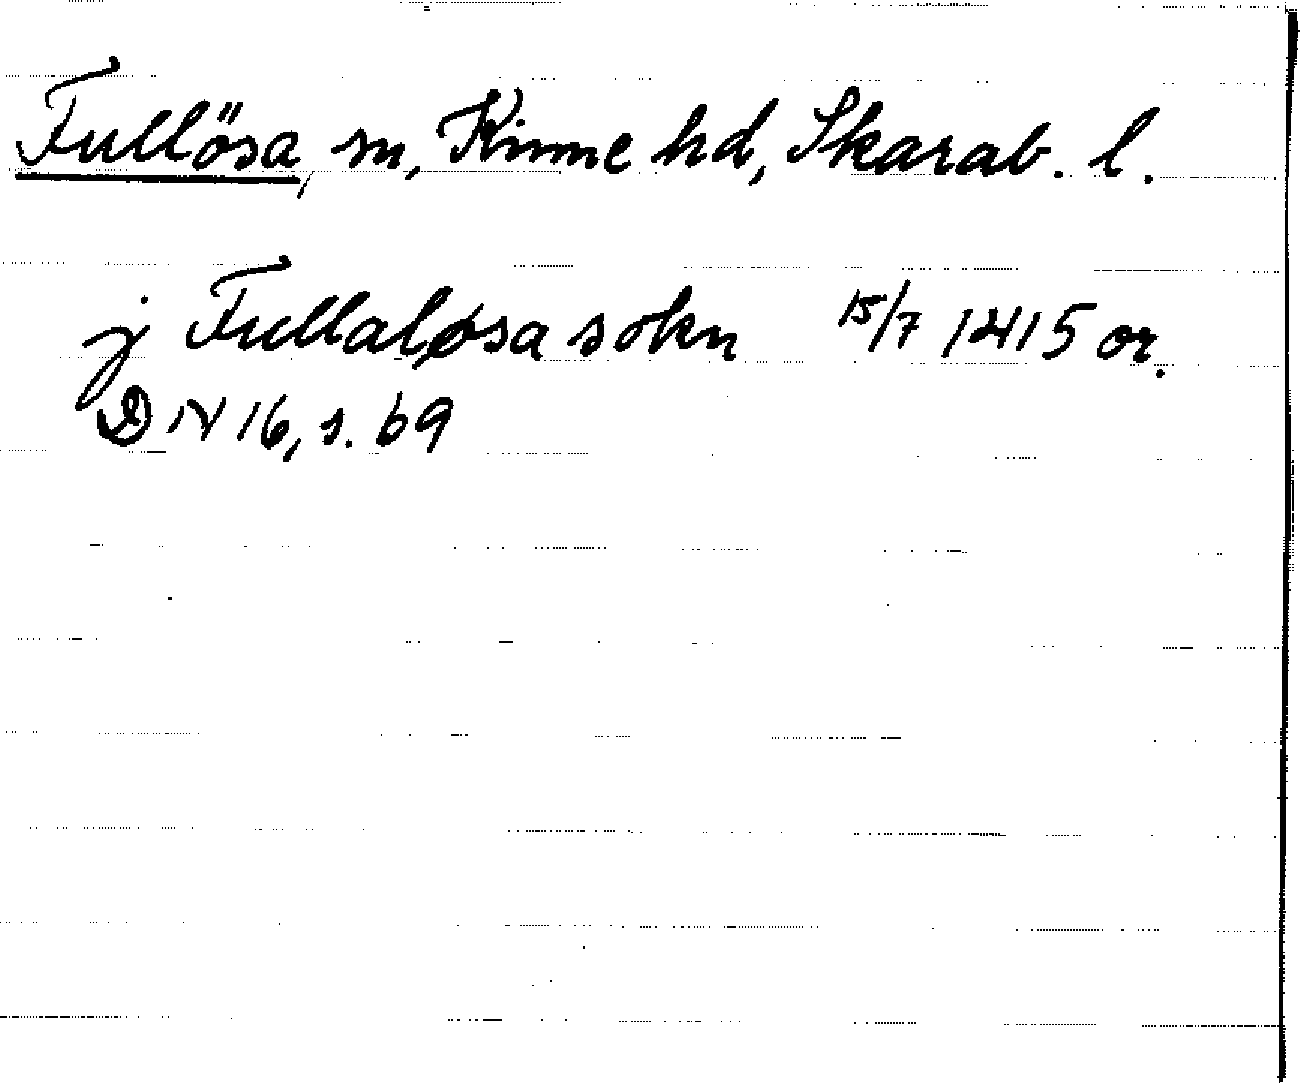 Fullösa, sn, Kinne hd, Skarab. l.
j Fullaløsa sokn 15/7 1415 or.
DN 16, s. 69